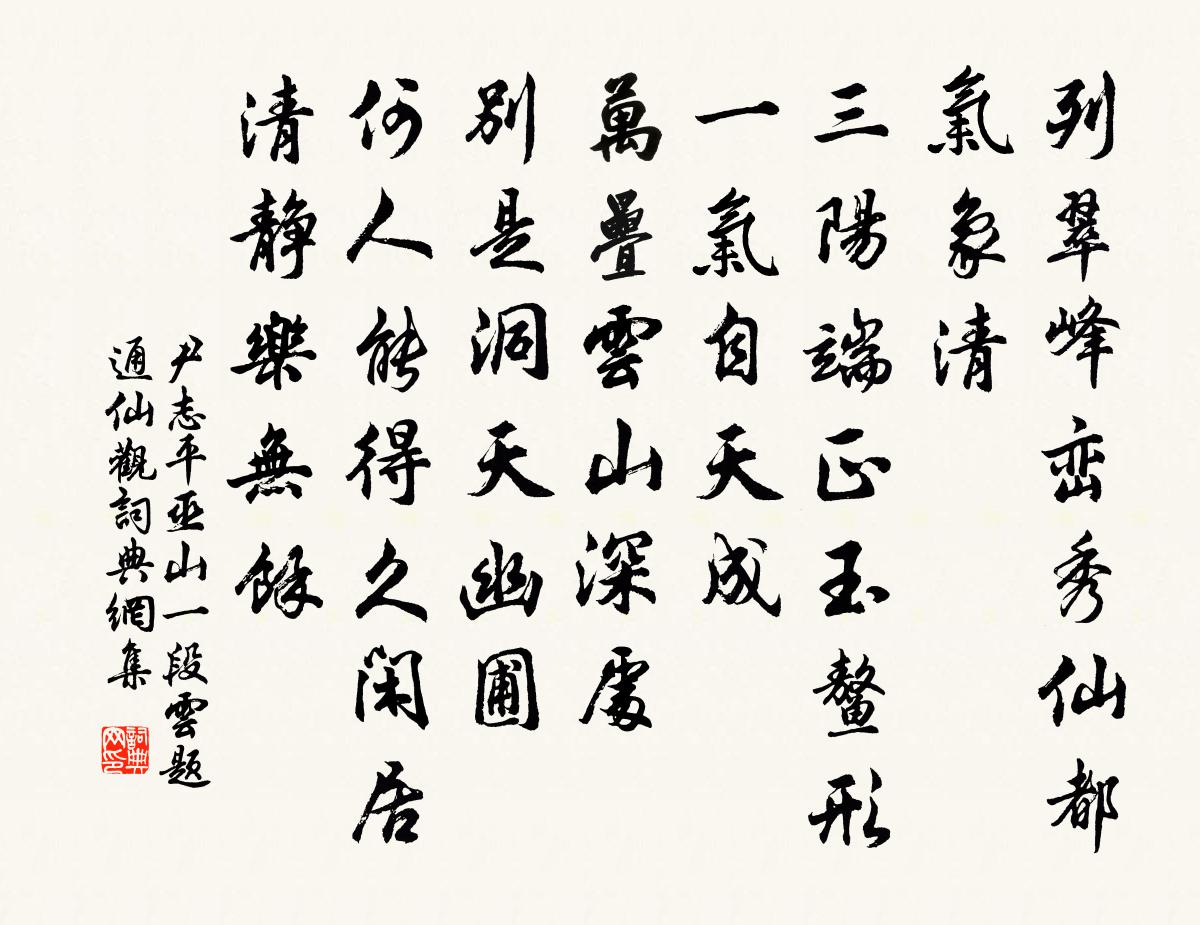 列翠峰巒秀仙都
氣象清
三陽端正玉鼇形
一氣自天成
萬疊雲山深處
別是洞天幽圃
何人能得久閑居
清靜樂無餘
尹志平巫山一段雲題
通仙觀詞典網集
詞典
网印